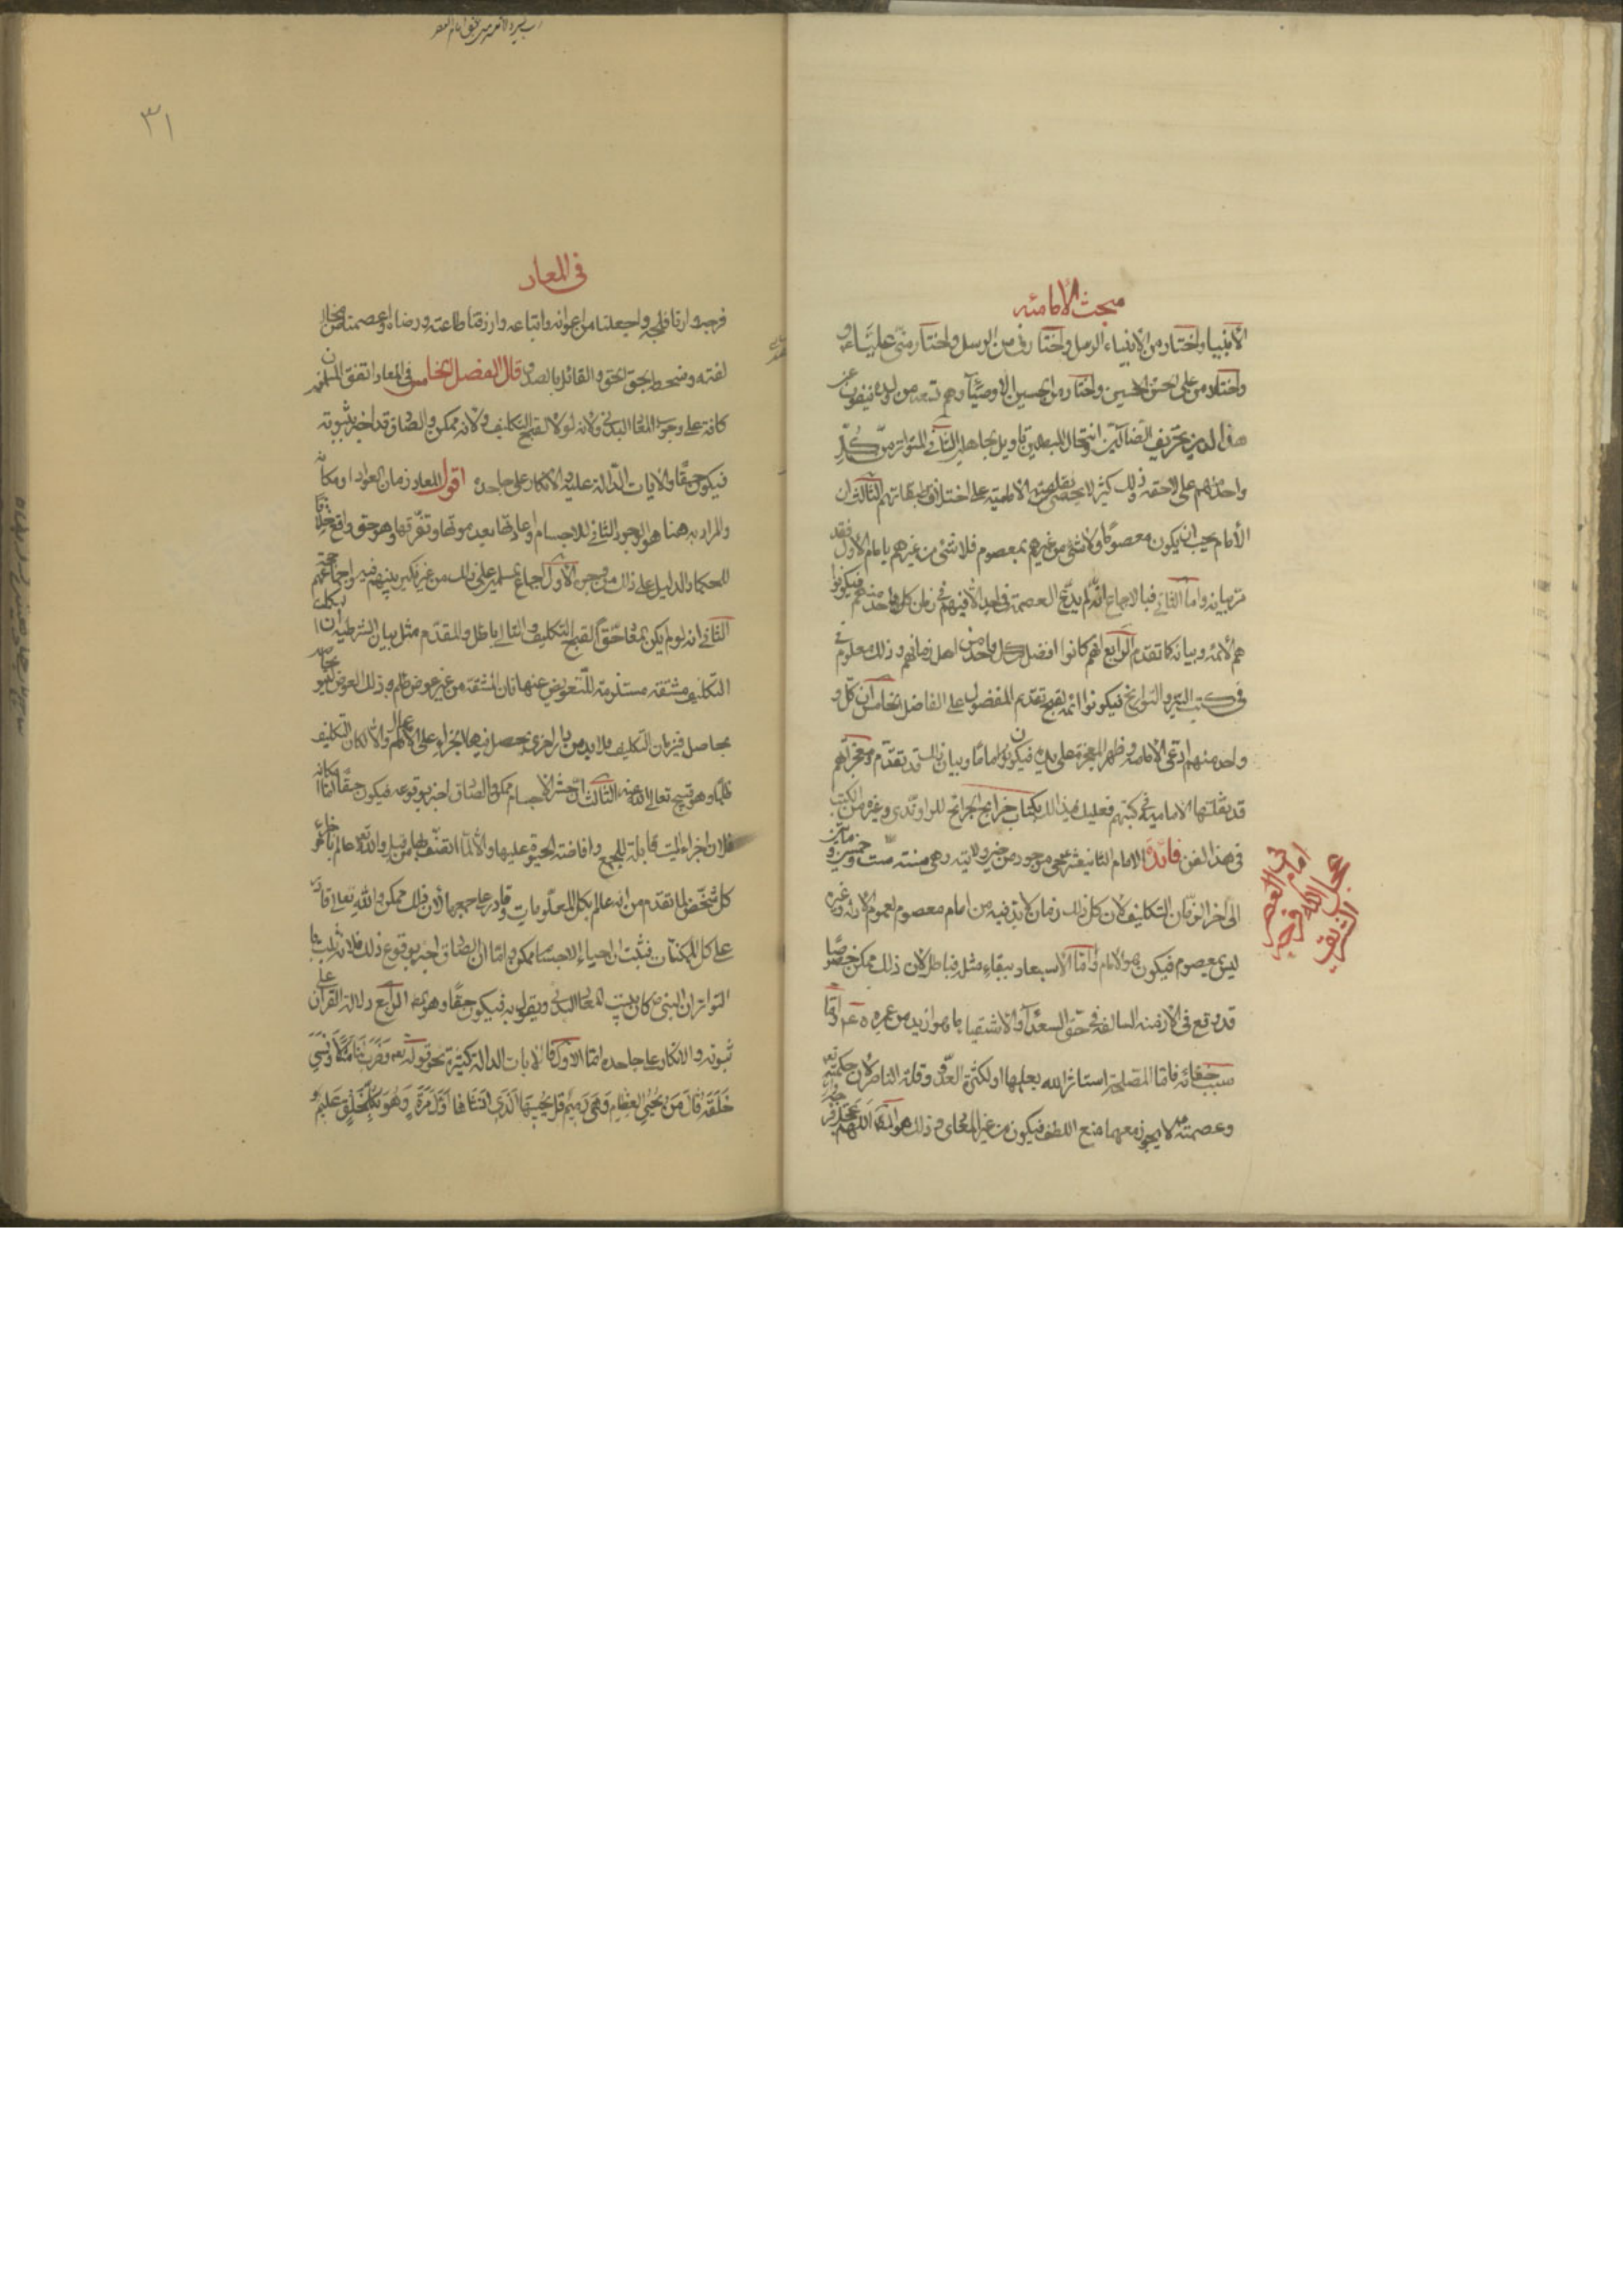 مبحث الامامة
الأنبياء واختار من الأنبياء الرسل واختارني من الرسل واختار مني عليا و
واختار من علي الحسن والحسين واختار من الحسين الاوصياء وهم تسعة من ولده ينفون عن
هذا الدين تحريف الضالين وانتحال المبطلين وتاويل الجاهلين الثاني المتواتر من كل
واحد منهم على لاحقه وذلك كثير لا يحصى نقلته الامامية على اختلاف طبقاتهم الثالث ان
الأمام يجب ان يكون معصوما ولا شئ من غيرهم بمعصوم فلا شئ من غيرهم بامام الأول فقد
مر بيانه واما الثاني فبالاجماع انه لم يدع العصمة في احد الا فيهم في زمان كل واحد منهم فيكونوا
هم الأئمة وبيانه كما تقدم الرابع انهم كانوا افضل من كل واحد من اهل زمانهم وذلك معلوم
في كتب السير والتواريخ فيكونوا ائمة لقبح تقديم المفضول على الفاضل الخامس ان كل
واحد منهم ادعى الامامة وظهر المعجز على يده فيكون اماما وبيان ذلك قد تقدم ومعجزاتهم
قد نقلتها الامامية في كتبهم فعليك في ذلك بكتاب خرايج الجرائح للراوندي وغيره من الكتب
في هذا الفن فائدة الامام الثاني عشر حي موجود من حين ولادته وهي سنة ست وخمسين و مأتين
الى آخر الزمان التكليف لان كل زمان لابد فيه من امام معصوم لعموم الادلة وغيره
ليس بمعصوم فيكون هو الامام واما الاستبعاد ببقاء مثله فباطل لان ذلك ممكن خصوصا
قد وقع في الأزمنة السالفة في حق السعداء والاشقياء ما هو ازيد من عمره ع م واما
سبب خفائه فاما لمصلحة استاثر الله بعلمها او لكثرة العدو وقلة الناصر لان حكمته تع
وعصمته لا يجوز معهما منع اللطف فيكون من غير المعادي وذلك هو اللهم عجل
عجل الله فرجه الشريف
في امام العصر
٣١
في المعاد
فرجه وارنا فلجه واجعلنا من اعوانه واتباعه وارزقنا طاعته ورضاه واعصمنا من مخا
لفته وسخطه بحق الحق والقائل بالصدق قال الفصل الخامس في المعاد اتفق المسلمون
كافة على وجوب المعاد البدني ولانه لولاه لقبح التكليف ولانه ممكن والصادق قد اخبر بثبوته
فيكون حقا والآيات الدالة عليه والانكار على جاحده اقول المعاد زمان العود او مكانه
والمراد به هنا هو الوجود الثاني للاجسام واعادتها بعد موتها وتفرقها وهو حق واقع خلافا
للحكماء والدليل على ذلك من وجوه الأول اجماع المسلمين على ذلك من غير نكير بينهم فيه واجماعهم حجة
الثاني انه لو لم يكن المعاد حقا لقبح التكليف والتالي باطل والمقدم مثله بيان الشرطية ان
التكليف مشقة مستلزمة للتعويض عنها فان المشقة من غير عوض ظلم وذلك العوض ليس
بحاصل في زمان التكليف فلابد من دار اخرى يحصل فيها الجزاء على الاعمال والا لكان التكليف
ظلما وهو قبيح تعالى الله عنه الثالث ان حشر الاجسام ممكن والصادق اخبر بوقوعه فيكون حقا اما امكانه
فلان اجزاء الميت قابلة للجمع وافاضة الحيوة عليها والا لما اتصف بها من قبل والله تع عالم باجزاء
كل شخص لما تقدم من انه عالم بكل المعلومات وقادر على جمعها لأن ذلك ممكن والله تعالى قادر
على كل الممكنات فثبت ان احياء الاجسام ممكن واما ان الصادق اخبر بوقوع ذلك فلانه ثبت با
لتواتر ان النبي ص كان يثبت المعاد البدني ويقول به فيكون حقا وهو المط الرابع دلالة القرآن على
ثبوته والانكار على جاحده اما الأول فالآيات الدالة كثيرة نحو قوله تع وضرب لنا مثلا ونسي
خلقه قال من يحيي العظام وهي رميم قل يحييها الذي انشأها اول مرة وهو بكل خلق عليم